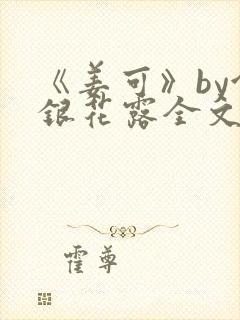 《姜可》by
銀花露全文
霍尊